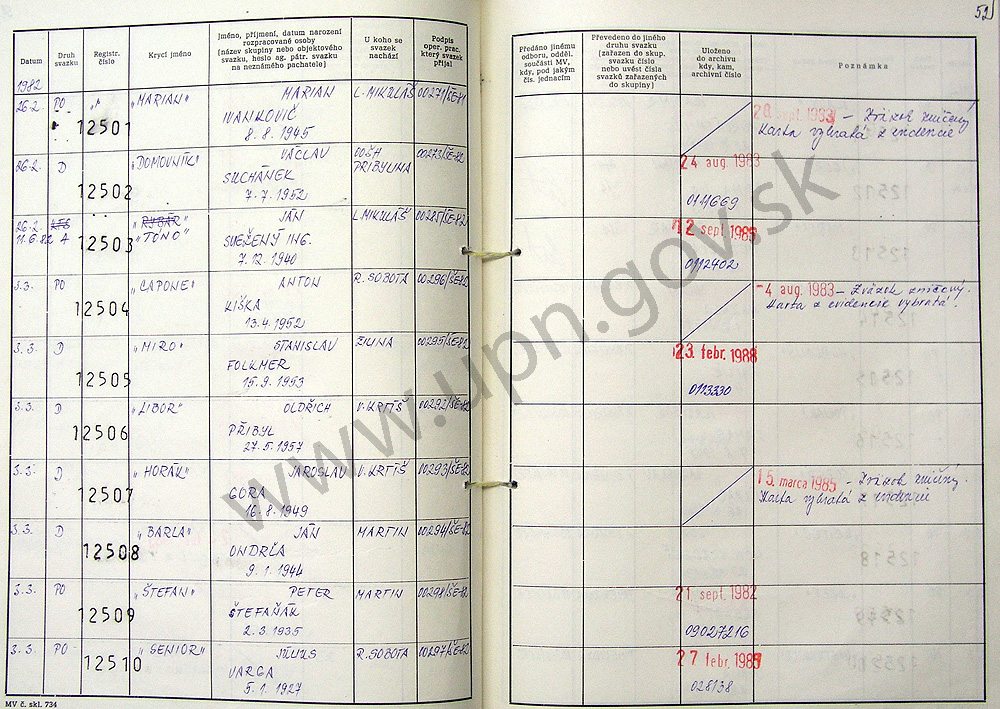 52
Datum
Druh svazku
Registr. číslo
Krycí jméno
Jméno, příjmení, datum narození rozpracované osoby (název skupiny nebo objektového svazku, heslo ag. pátr. svazku na neznámého pachatele)
U koho se svazek nachází
Podpis oper. prac. který svazek přijal
Předáno jinému odboru, odděl. součásti MV, kdy, pod jakým čís. jednacím
Převedeno do jiného druhu svazku (zařazen do skup. svazku číslo nebo uvést čísla svazků zařazených do skupiny)
Uloženo do archivu kdy, kam, archivní číslo
Poznámka
1982
26.2. PO 12501 „MARIAN“ MARIAN L. MIKULÁŠ 00271/ŠE-81
IVANKOVIČ
8. 8. 1945
28 sept. 1983 – Zväzok zničený
Karta vybratá z evidencie
26.2. D 12502 „DOMOVNÍK“ VÁCLAV OOŠH PRIBYLINA 00273/ŠE-82
SUCHÁNEK
7. 7. 1952
24 aug. 1983
0111669
26.2. 12503 „RYBÁR“ JÁN L. MIKULÁŠ 00285/ŠE-82
11.6.82 A „TÓNO“
SVEŽENÝ ING.
7. 12. 1940
12 sept. 1985
0112402
3.3. PO 12504 „CAPONE“ ANTON R. SOBOTA 00296/ŠE-82
KIŠKA
13. 4. 1952
-4 aug. 1983 – Zväzok zničený.
Karta z evidencie vybratá.
3.3. D 12505 „MIRO“ STANISLAV ŽILINA 00295/ŠE-82
FOLKMER
15. 9. 1953
23. febr. 1988
0113330
3.3. D 12506 „LIBOR“ OLDŘICH V. KRTÍŠ 00292/ŠE-82
PŘIBYL
27. 5. 1957
3.3. D 12507 „HORÁK“ JAROSLAV V. KRTÍŠ 00293/ŠE-82
GORA
16. 8. 1949
15. marca 1985 – Zväzok zničený.
Karta vybratá z evidencie
3.3. D 12508 „BARLA“ JÁN MARTIN 00294/ŠE-82
ONDRČA
9. 1. 1944
3.3. PO 12509 „ŠTEFAN“ PETER MARTIN 00298/ŠE-82
ŠTEFAŇÁK
2. 3. 1935
21 sept. 1982
09027216
3.3. PO 12510 „SENIOR“ JÚLIUS R. SOBOTA 00297/ŠE-82
VARGA
5. 1. 1927
27 febr. 1987
028138
MV č. skl. 734
www.upn.gov.sk